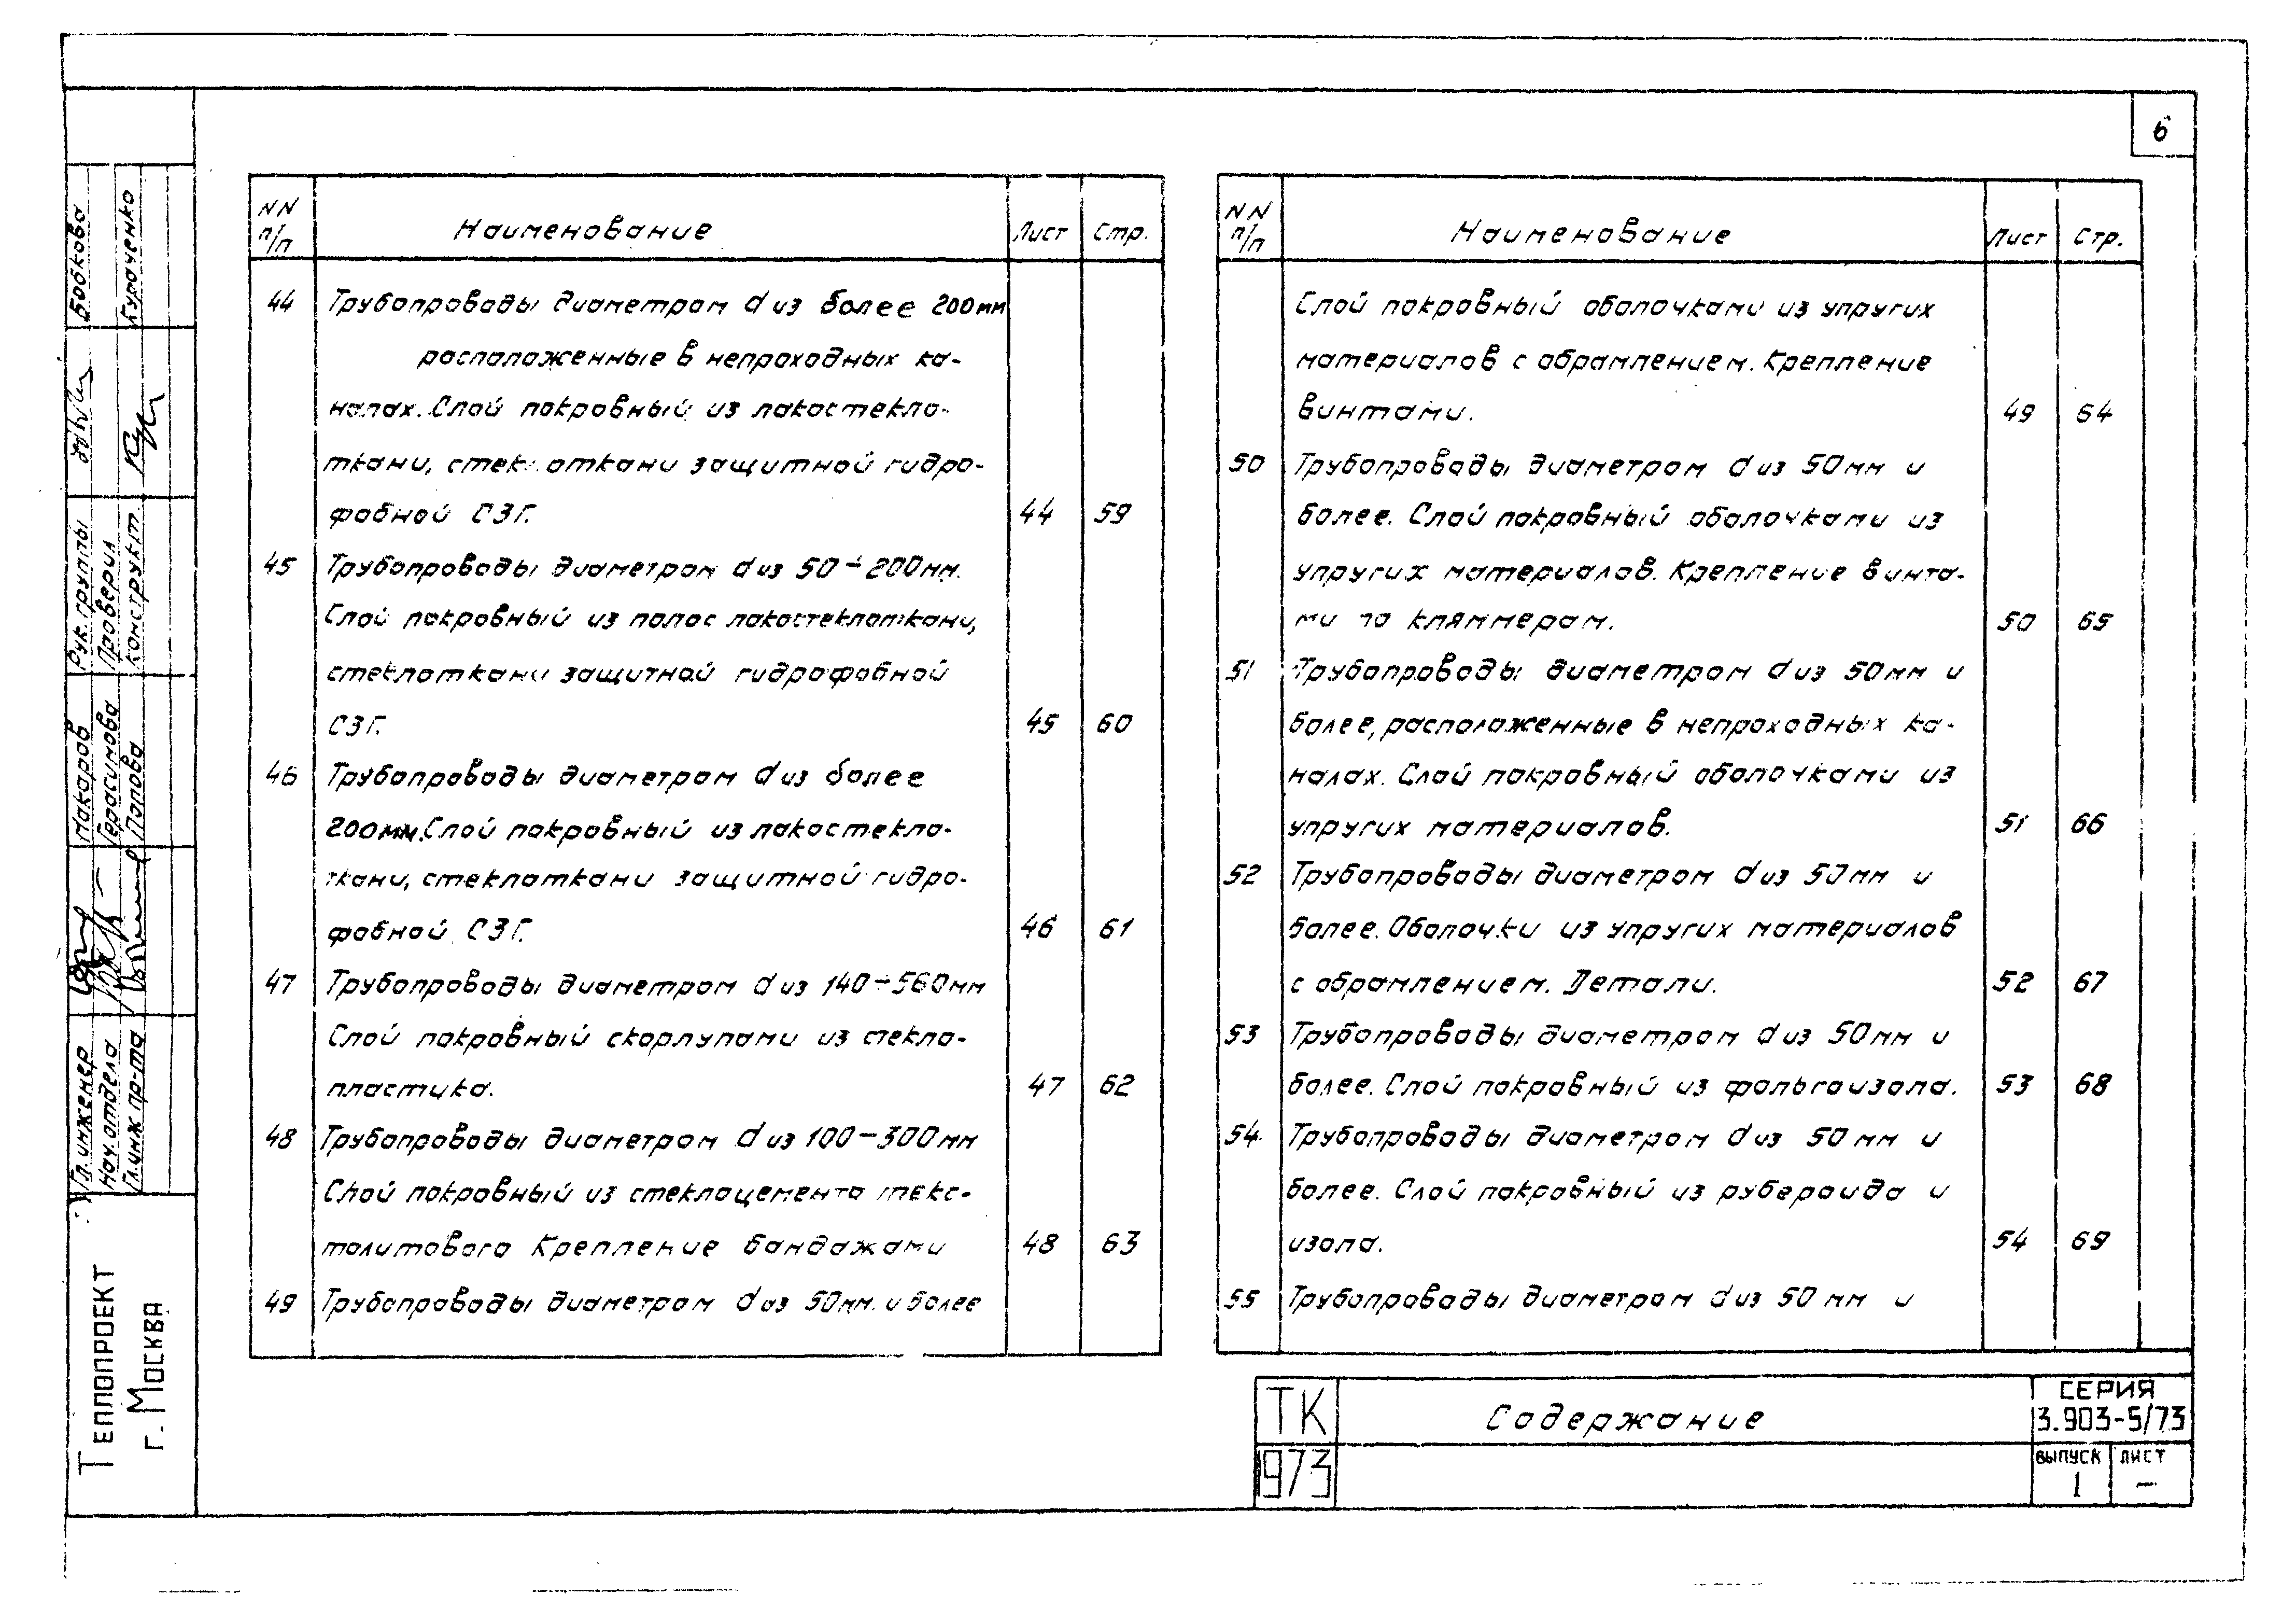 6
NN п/п Наименование Лист Стр.
44 Трубопроводы диаметром dиз более 200мм
расположенные в непроходных ка-
налах. Слой покровный из лакостекло-
ткани, стеклоткани защитной гидро-
фобной СЗГ. 44 59
45 Трубопроводы диаметром dиз 50÷200мм.
Слой покровный из полос лакостеклоткани,
стеклоткани защитной гидрофобной
СЗГ. 45 60
46 Трубопроводы диаметром dиз более
200мм. Слой покровный из лакостекло-
ткани, стеклоткани защитной гидро-
фобной СЗГ. 46 61
47 Трубопроводы диаметром dиз 140÷560мм
Слой покровный скорлупами из стекло-
пластика. 47 62
48 Трубопроводы диаметром dиз 100-300мм
Слой покровный из стеклоцемента текс-
толитового Крепление бандажами 48 63
49 Трубопроводы диаметром dиз 50мм. и более
NN п/п Наименование Лист Стр.
Слой покровный оболочками из упругих
материалов с обрамлением. Крепление
винтами. 49 64
50 Трубопроводы диаметром dиз 50мм и
более. Слой покровный оболочками из
упругих материалов. Крепление винта-
ми по кляммерам. 50 65
51 Трубопроводы диаметром dиз 50мм и
более, расположенные в непроходных ка-
налах. Слой покровный оболочками из
упругих материалов. 51 66
52 Трубопроводы диаметром dиз 50мм и
более. Оболочки из упругих материалов
с обрамлением. Детали. 52 67
53 Трубопроводы диаметром dиз 50мм и
более. Слой покровный из фольгоизола. 53 68
54 Трубопроводы диаметром dиз 50мм и
более. Слой покровный из рубероида и
изола. 54 69
55 Трубопроводы диаметром dиз 50мм и
ТК
1973
Содержание
СЕРИЯ
3.903-5/73
ВЫПУСК ЛИСТ
1 —
Гл. инженер Макаров Рук. группы Бобкова
Нач. отдела Герасимова Проверил
Гл. инж. пр-та Попова Конструкт. Кураченко
ТЕПЛОПРОЕКТ
г. МОСКВА